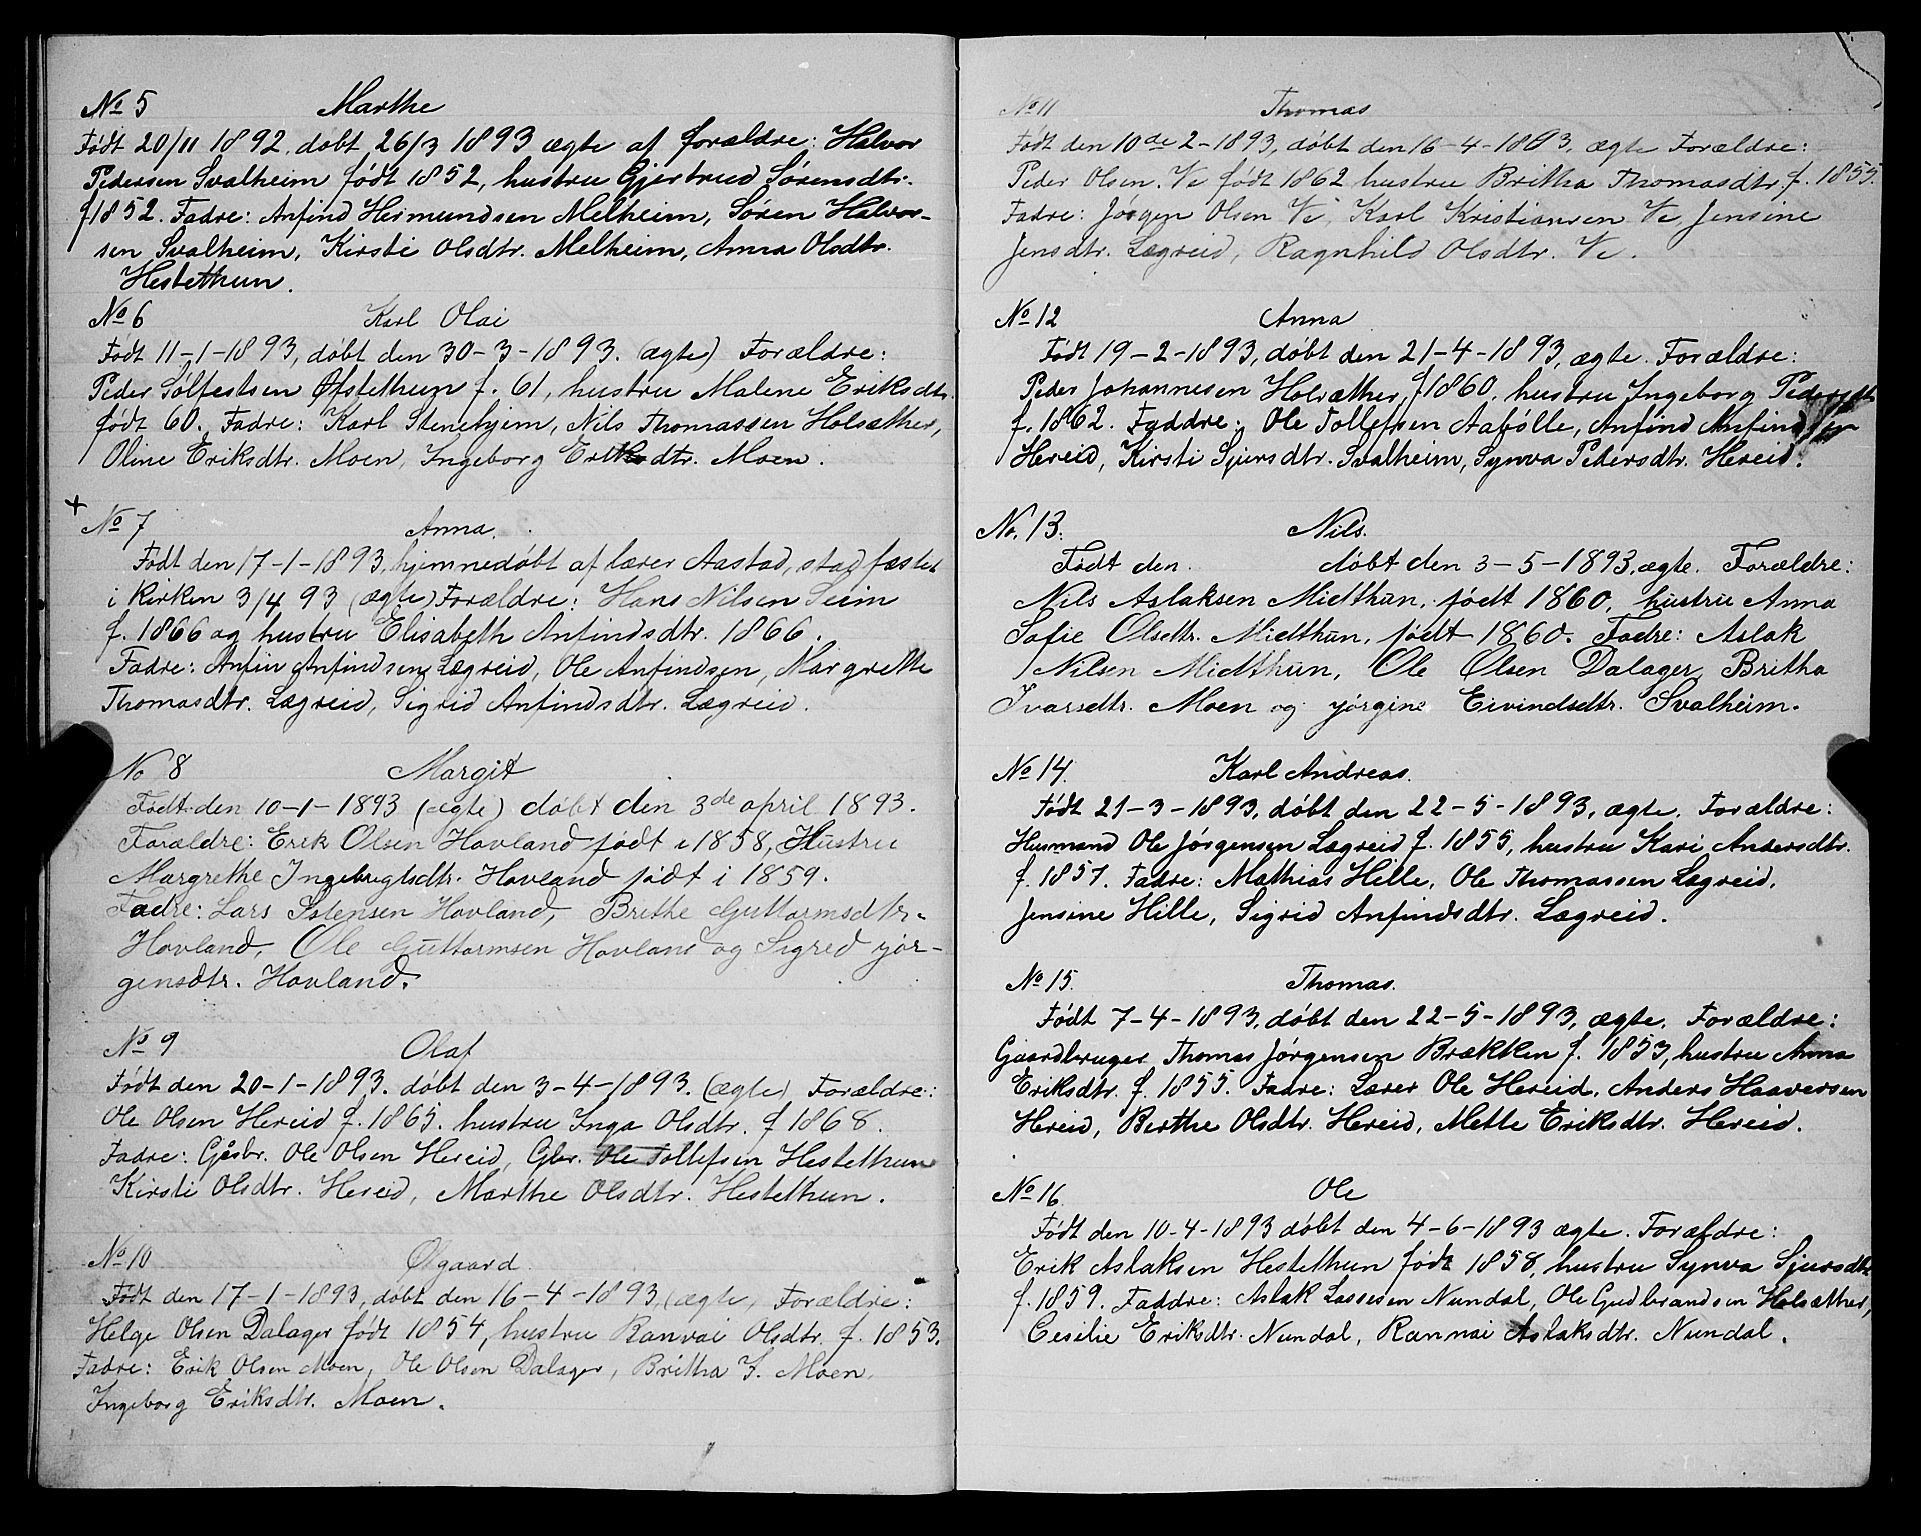 No 5 Marthe
Født 20/11 1892. døbt 26/3 1893 ægte af forældre: Halvor
Pedersen Svalheim født 1852, hustru Gjertrud Sørensdtr.
f 1852. Fadre: Anfind Hermundsen Melheim, Søren Halvor-
sen Svalheim, Kirsti Olsdtr. Melheim, Anna Olsdtr.
Hestethun.
No 6 Karl Olai
Født 11-1-1893, døbt den 30-3-1893. (ægte) Forældre:
Peder Solfestsen Øfstethun f. 61, hustru Malene Eriksdtr.
født 60. Fadre: Karl Stenehjem, Nils Thomassen Holsæther,
Oline Eriksdtr. Moen, Ingeborg Eriksdtr. Moen.
+
No 7 Anna.
Født den 17-1-1893. hjemmedøbt af lærer Aastad, stadfæstet
i Kirken 3/4 93 (ægte) Forældre: Hans Nilsen Seim
f. 1866 og hustru Elisabeth Anfindsdtr. 1866.
Fadre: Anfin Anfindsen Lægreid, Ole Anfindsen, Margrethe
Thomasdtr. Lægreid, Sigrid Anfindsdtr. Lægreid.
No 8 Margit
Født den 10-1-1893 (ægte) døbt den 3de april 1893.
Forældre: Erik Olsen Hovland født i 1858, Hustru
Margrethe Ingebrigtsdtr. Hovland født i 1859.
Fadre: Lars Sstensen Hovland, Brithe Guttormsdtr.
Hovland, Ole Guttormsen Hovland og Sigred Jør-
gensdtr. Hovland.
No 9 Olaf
Født den 20-1-1893. døbt den 3-4-1893. (ægte) Forældre:
Ole Olsen Hereid f. 1865. hustru Inga Olsdtr. f 1868.
Fadre: Gåsbr. Ole Olsen Hereid, Gbr. Ole Tollefsen Hestethun
Kirsti Olsdtr. Hereid, Marthe Olsdtr. Hestethun.
No 10 Olgaard
Født den 17-1-1893, døbt den 16-4-1893, (ægte, Forældre:
Helge Olsen Dalager født 1854, hustru Ranvei Olsdtr. f. 1853.
Fadre: Erik Olsen Moen, Ole Olsen Dalager, Britha I. Moen,
Ingeborg Eriksdtr. Moen.
No 11 Thomas
Født den 10de 2-1893, døbt den 16-4-1893, ægte Forældre:
Peder Olsen. Ve født 1862 hustru Britha Thomasdtr. f. 1855.
Fadre: Jørgen Olsen Ve, Karl Kristiansen Ve, Jensine
Jensdtr. Lægreid, Ragnhild Olsdtr. Ve.
No 12 Anna
Født 19-2-1893, døbt den 21-4-1893, ægte. Forældre:
Peder Johannesen Holsæther, f 1860, hustru Ingeborg Pedersdtr
f. 1862. Faddre: Ole Tollefsen Aafølle, Anfind Anfindsen
Hereid, Kirsti Sjursdtr. Svalheim, Synva Pedersdtr. Hereid.
No. 13. Nils.
Født den. døbt den 3-5-1893. ægte. Forældre:
Nils Aslaksen Midtthun, født 1860, hustru Anna
Sofie Olsdtr. Midtthun, født 1860. Fadre: Aslak
Nilsen Midtthun, Ole Olsen Dalager, Britha
Ivarsdtr. Moen og Jørgine Eivindsdtr. Svalheim.
No 14. Karl Andreas.
Født 21-3-1893, døbt den 22-5-1893, ægte. Forældre:
Husmand Ole Jørgensen Lægreid f. 1855, hustru Kari Andersdtr.
f. 1857. Fadre: Mathias Hille, Ole Thomassen Lægreid,
Jensine Hille, Sigrid Anfindsdtr. Lægreid.
No 15. Thomas.
Født 7-4-1893, døbt den 22-5-1893, ægte. Forældre:
Gaardbruger Thomas Jørgensen Brækken f. 1853, hustru Anna
Eriksdtr. f. 1855. Fadre: Lærer Ole Hereid, Anders Haaversen
Hereid, Berthe Olsdtr. Hereid, Mette Eriksdtr. Hereid.
No 16. Ole
Født den 10-4-1893 døbt den 4-6-1893 ægte. Forældre:
Erik Aslaksen Hestethun født 1858, hustru Synva Sjursdtr
f. 1859. Faddre: Aslak Lassesen Nundal, Ole Gudbrandsen Holsæther,
Cesilie Eriksdtr. Nundal, Rannai Aslaksdtr. Nundal.